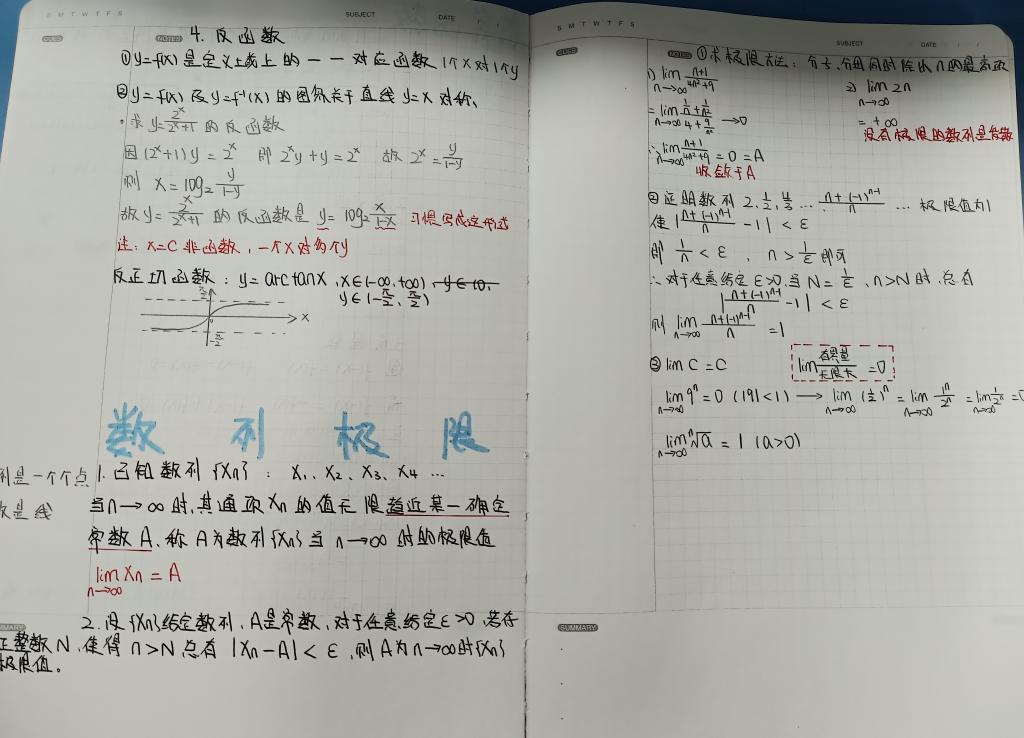 S M T W T F S SUBJECT DATE / /
NOTES 4. 反函数
① y=f(x) 是定义域上的一一对应函数 1个x对1个y
② y=f(x) 及 y=f⁻¹(x) 的图像关于直线 y=x 对称、
· 求 y=2ˣ/(2ˣ+1) 的反函数
因 (2ˣ+1)y = 2ˣ 即 2ˣy+y=2ˣ 故 2ˣ=y/(1-y)
则 x = log₂ y/(1-y)
故 y=2ˣ/(2ˣ+1) 的反函数是 y= log₂ x/(1-x) 习惯写成这形式
注: x=C 非函数, 一个x对多个y
反正切函数: y=arctanx, x∈(-∞,+∞)
y∈(-π/2, π/2)
π/2
x
-π/2
数 列 极 限
列是一个个点
1. 已知数列{Xn}: X₁、X₂、X₃、X₄ …
当n→∞时,其通项Xn的值无限趋近某一确定
数是线
常数A、称A为数列{Xn}当 n→∞ 时的极限值
lim n→∞ Xn = A
SUMMARY
2. 设{Xn}给定数列、A是常数、对于任意给定ε>0、若存
正整数N、使得 n>N 总有 |Xn-A|<ε,则A为n→∞时{Xn}
极限值。
S M T W T F S SUBJECT DATE / /
NOTES ① 求极限方法: 分子、分母同时除以n的最高次
1) lim n→∞ (n+1)/(4n²+9)
2) lim n→∞ 2n
= lim n→∞ (1/n+1/n²)/(4+9/n²) →0
= +∞
没有极限的数列是发散
∴ lim n→∞ (n+1)/(4n²+9) =0=A
收敛于A
② 证明数列 2、1/2、4/3 … (n+(-1)ⁿ⁻¹)/n … 极限值为1
使 |(n+(-1)ⁿ⁻¹)/n -1| < ε
即 1/n < ε 、 n>1/ε 即可
∴ 对于任意给定ε>0、当 N=1/ε 、n>N时、总有
|(n+(-1)ⁿ⁻¹)/n -1| < ε
则 lim n→∞ (n+(-1)ⁿ⁻¹)/n =1
③ lim C = C
lim 有界量/无限大 =0
lim n→∞ qⁿ=0 (|q|<1) → lim n→∞ (1/2)ⁿ = lim n→∞ 1ⁿ/2ⁿ = lim n→∞ 1/2ⁿ =0
lim n→∞ ⁿ√a = 1 (a>0)
SUMMARY